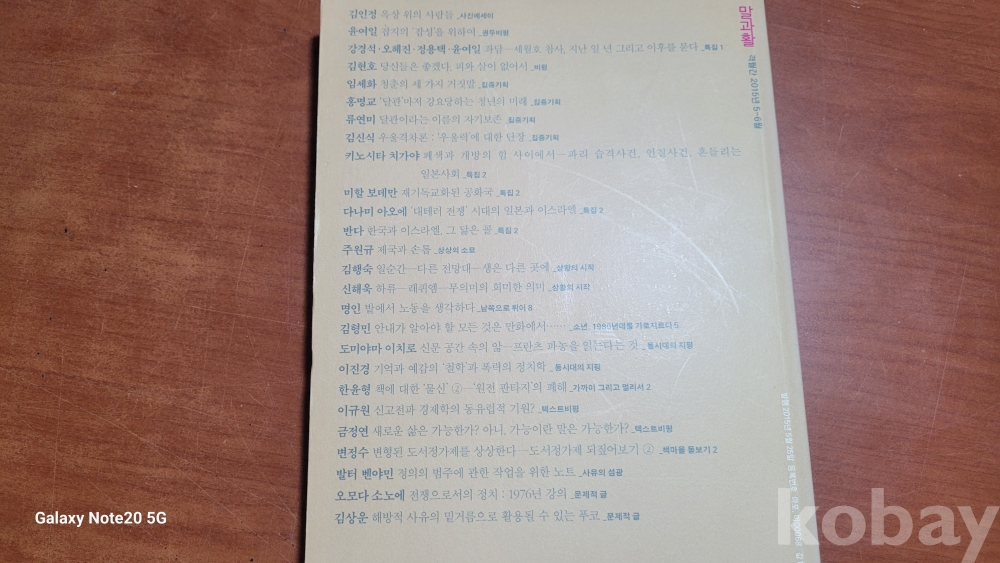 김인정 옥상 위의 사람들 _사진에세이
윤여일 잡지의 '감성'을 위하여 _권두비평
강경석·오혜진·정용택·윤여일 좌담—세월호 참사, 지난 일 년 그리고 이후를 묻다 _특집 1
김현호 당신들은 좋겠다, 피와 살이 없어서 _비평
임세화 청춘의 세 가지 거짓말 _집중기획
홍명교 '달관'마저 강요당하는 청년의 미래 _집중기획
류연미 달관이라는 이름의 자기보존 _집중기획
김신식 우울격차론 : '우울력'에 대한 단장 _집중기획
키노시타 치가야 폐색과 개방의 힘 사이에서—파리 습격사건, 인질사건, 흔들리는
일본사회 _특집 2
미할 보데만 재기독교화된 공화국 _특집 2
다나미 아오에 '대테러 전쟁' 시대의 일본과 이스라엘 _특집 2
반다 한국과 이스라엘, 그 닮은 꼴 _특집 2
주원규 제국과 손톱 _상상의 소묘
김행숙 일순간—다른 전망대—생은 다른 곳에 _상황의 시작
신해욱 하류—래퀴엠—무의미의 희미한 의미 _상황의 시작
명인 밭에서 노동을 생각하다 _남쪽으로 튀어 8
김형민 안내가 알아야 할 모든 것은 만화에서…… _소년, 1980년대를 가로지르다 5
도미야마 이치로 신문 공간 속의 앎—프란츠 파농을 읽는다는 것 _동시대의 지평
이진경 기억과 예감의 '철학'과 폭력의 정치학 _동시대의 지평
한윤형 책에 대한 '물신' ②—'원전 판타지'의 폐해 _가까이 그리고 멀리서 2
이규원 신고전파 경제학의 동유럽적 기원? _텍스트비평
금정연 새로운 삶은 가능한가? 아니, 가능이란 말은 가능한가? _텍스트비평
변정수 변형된 도서정가제를 상상한다—도서정가제 되짚어보기 ② _책마을 돌보기 2
발터 벤야민 정의의 범주에 관한 작업을 위한 노트 _사유의 섬광
오모다 소노에 전쟁으로서의 정치 : 1976년 강의 _문제적 글
김상운 해방적 사유의 밑거름으로 활용될 수 있는 푸코 _문제적 글
말과활 격월간 2015년 5–6월
Galaxy Note20 5G
kobay